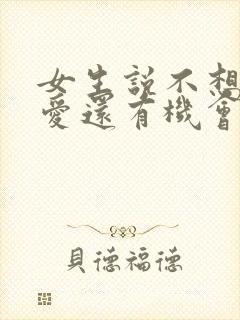 女生説不想
愛還有機會
貝德福德